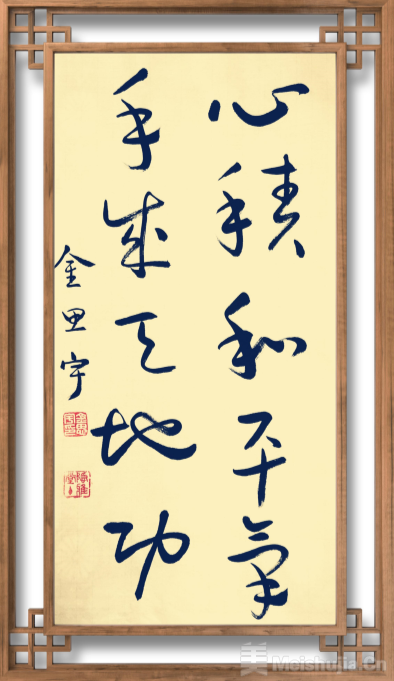 心積和平氣
手成天地功
金思宇
美 Meishujia.Cn